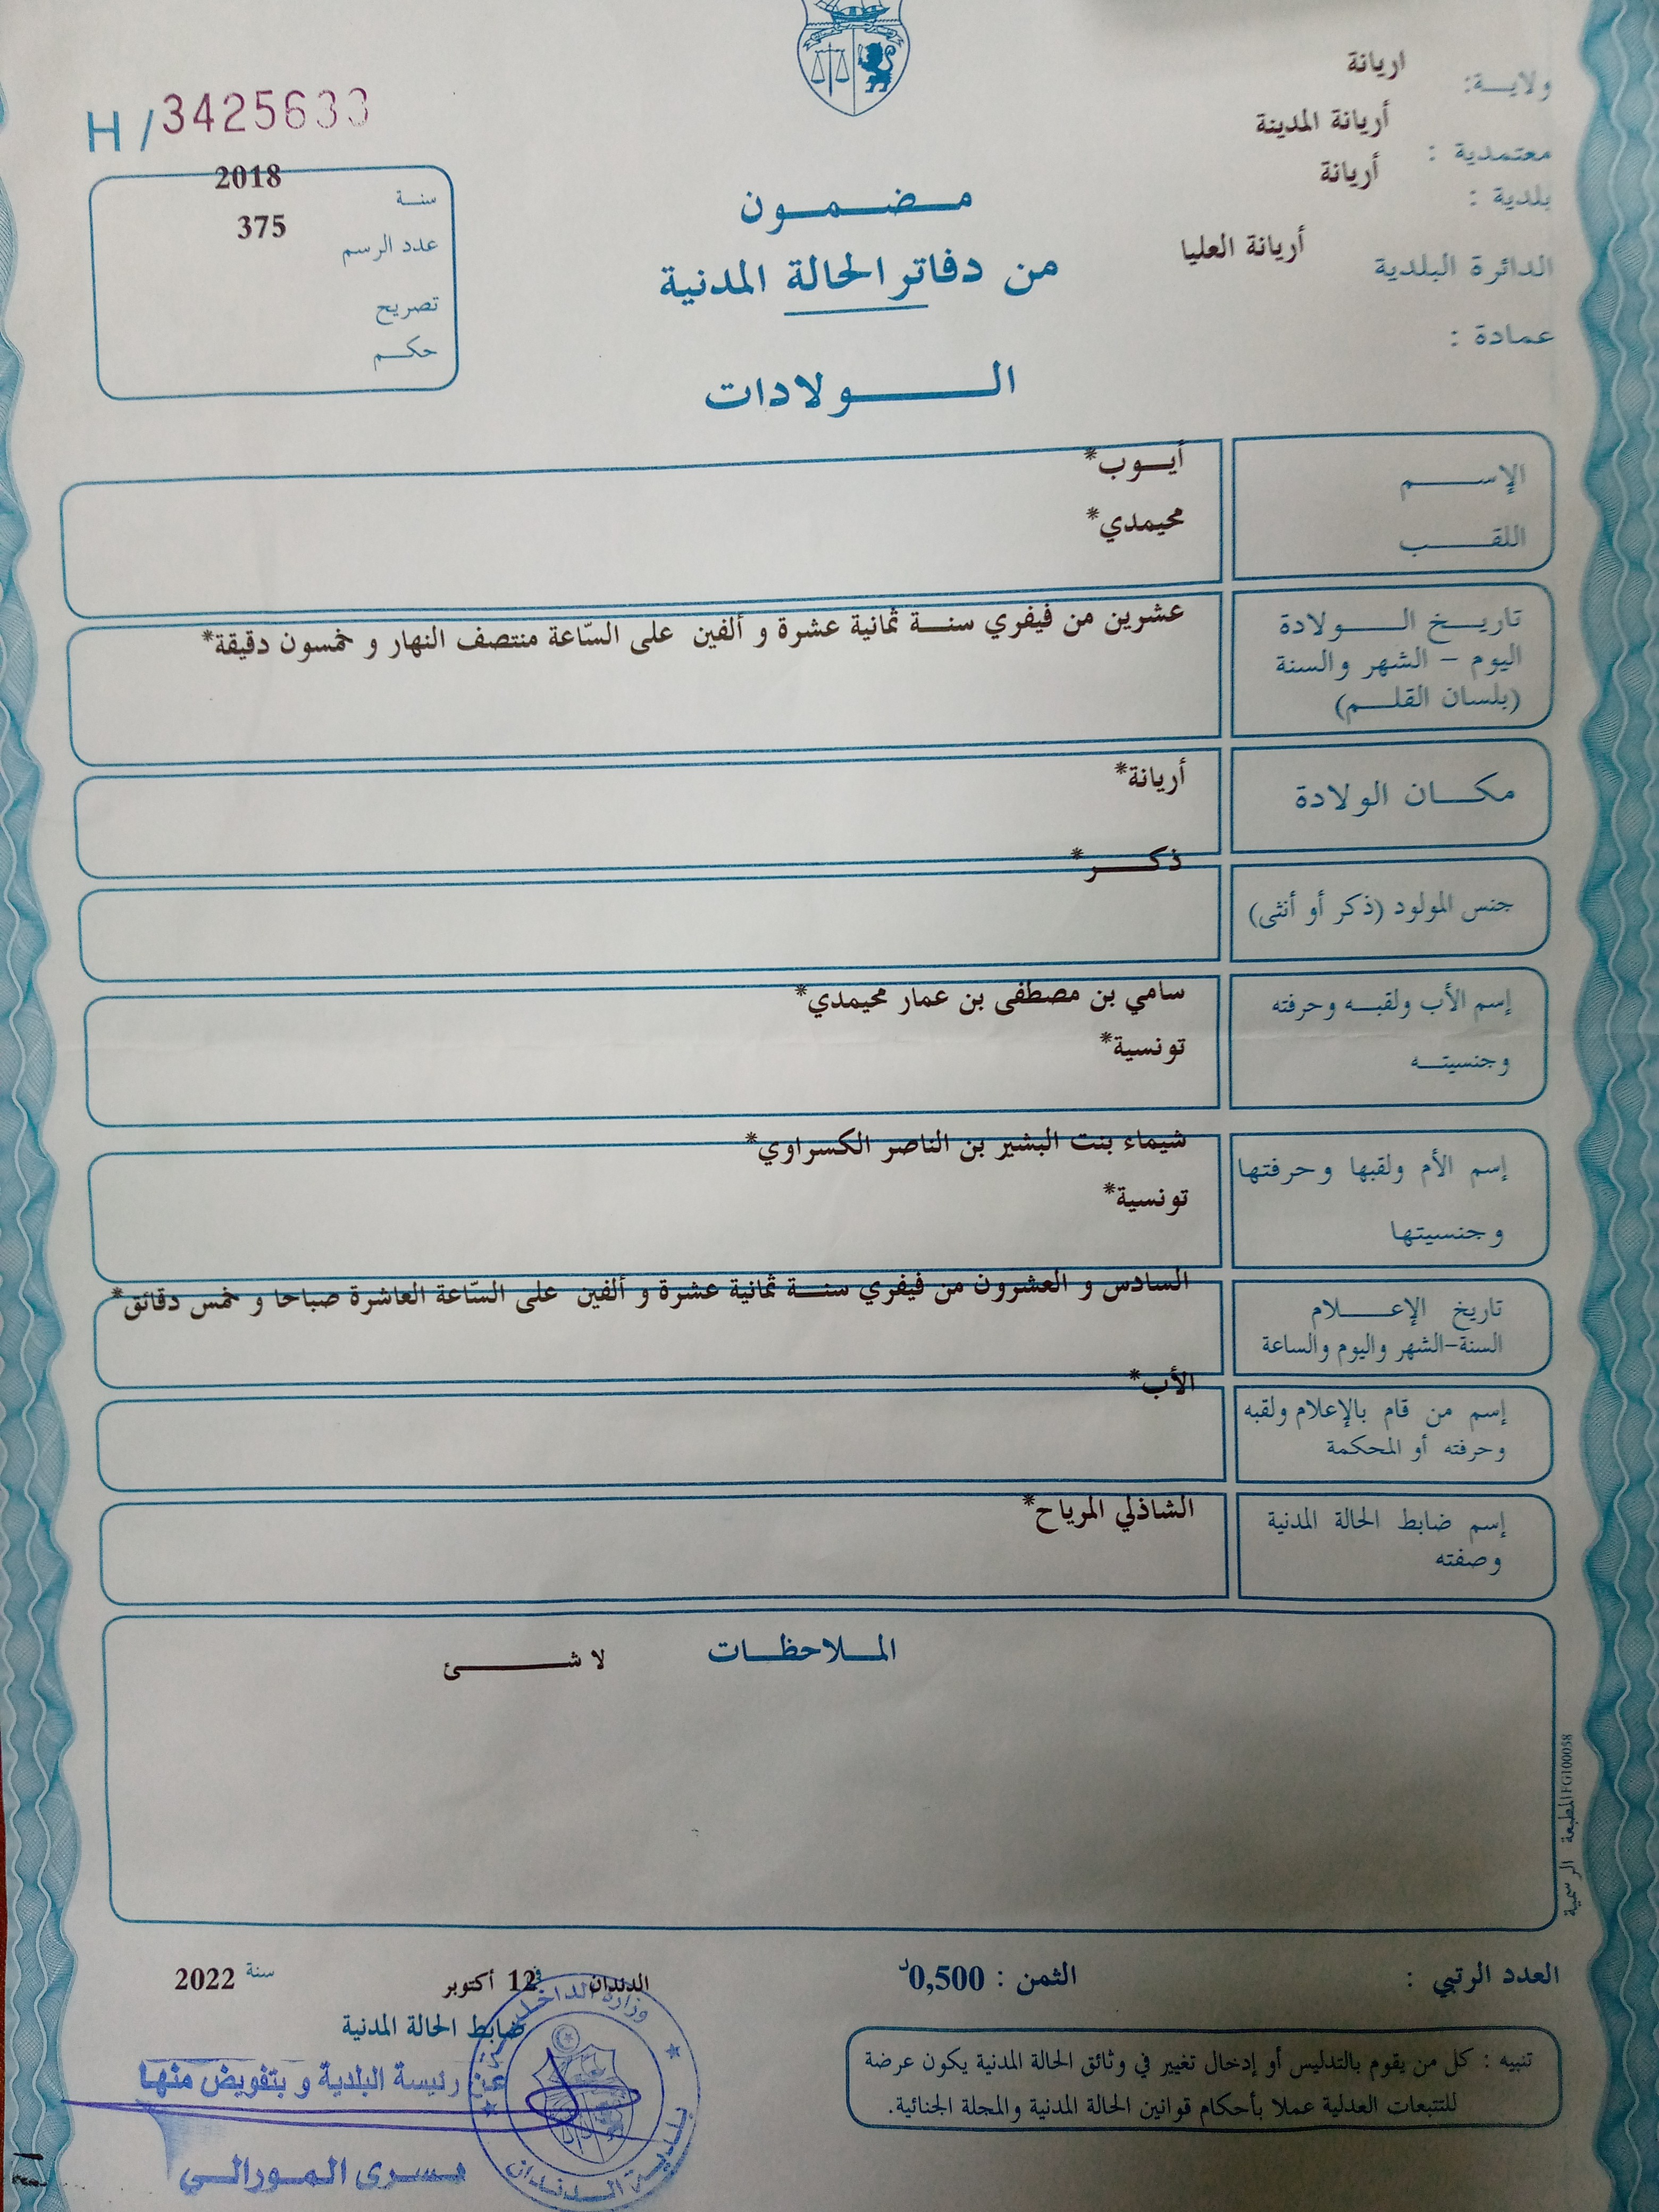 ولايـــة: اريانة
معتمدية : أريانة المدينة
بلدية : أريانة
الدائرة البلدية أريانة العليا
عمادة :
H / 3425633
سنـة 2018
عدد الرسم 375
تصريح
حكـم
مـضـمـون
من دفاتر الحالة المدنية
الـولادات
الإسـم أيـوب*
اللقـب محيمدي*
تاريـخ الـولادة
اليوم - الشهر والسنة
(بلسان القلـم)
عشرين من فيفري سنـة ثمانية عشرة و ألفين على السّاعة منتصف النهار و خمسون دقيقة*
مكـان الولادة أريانة*
جنس المولود (ذكر أو أنثى) ذكـر*
إسم الأب ولقبـه وحرفته سامي بن مصطفى بن عمار محيمدي*
وجنسيتـه تونسية*
إسم الأم ولقبها وحرفتها شيماء بنت البشير بن الناصر الكسراوي*
وجنسيتها تونسية*
تاريخ الإعـلام
السنة-الشهر واليوم والساعة
السادس و العشرون من فيفري سنـة ثمانية عشرة و ألفين على السّاعة العاشرة صباحا و خمس دقائق*
إسم من قام بالإعلام ولقبه
وحرفته أو المحكمة
الأب*
إسم ضابط الحالة المدنية
وصفته
الشاذلي المرياح*
المـلاحظـات
لا شـئ
المطبعة الرسمية FG100058
العدد الرتبي :
الثمن : 0,500د
الدندان في 12 أكتوبر سنة 2022
ضابط الحالة المدنية
عن رئيسة البلدية و بتفويض منها
يسرى المورالي
وزارة الداخلية
بلدية الدندان
تنبيه : كل من يقوم بالتدليس أو إدخال تغيير في وثائق الحالة المدنية يكون عرضة
للتتبعات العدلية عملا بأحكام قوانين الحالة المدنية والمجلة الجنائية.